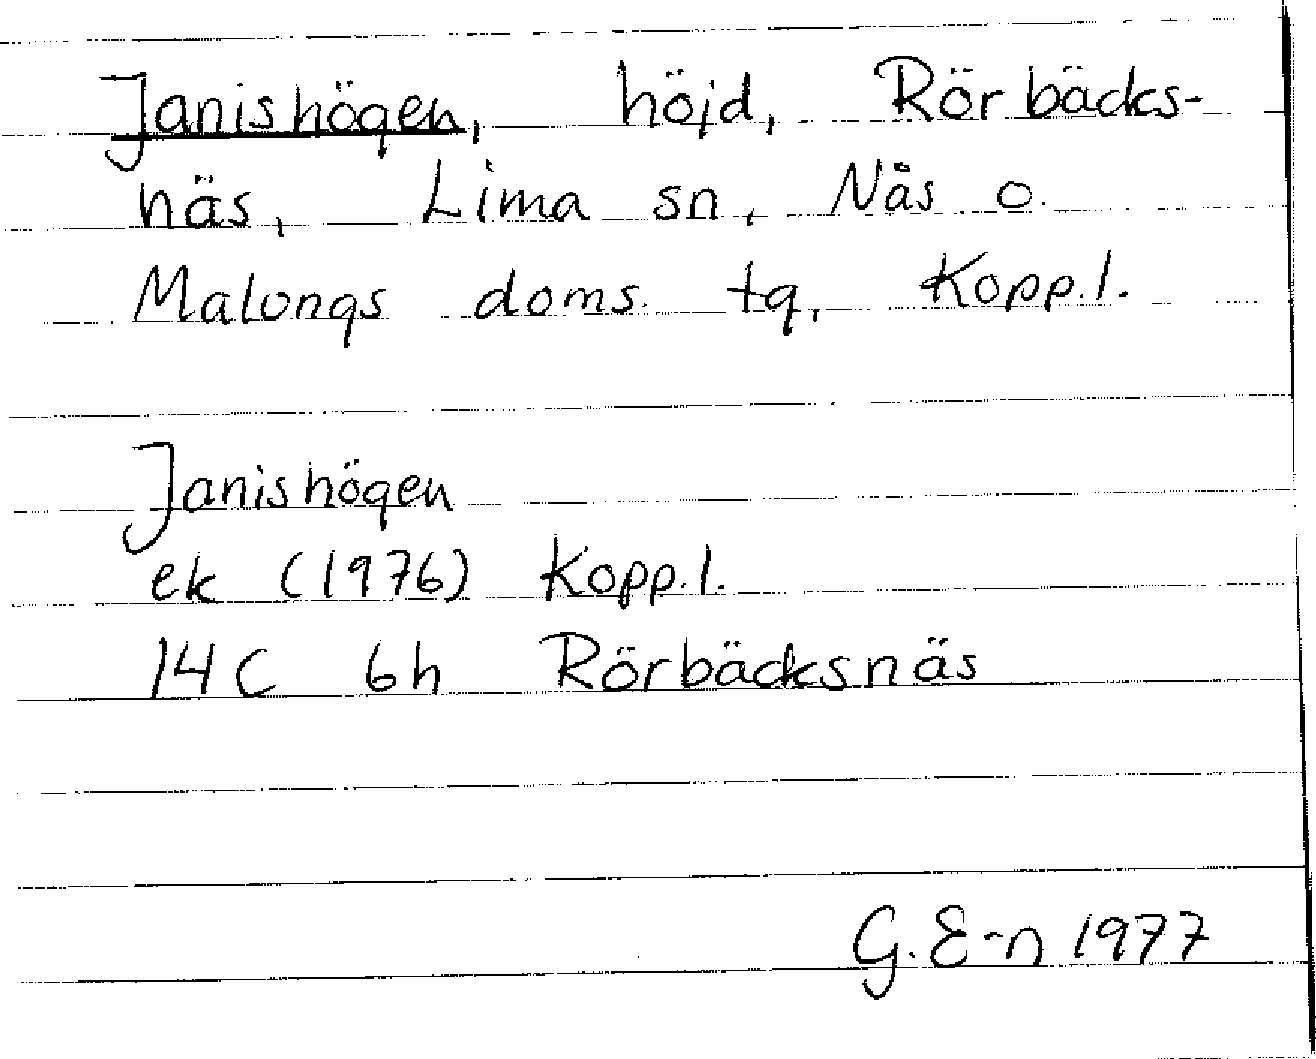 Janishögen, höjd, Rörbäcks-
näs, Lima sn, Nås o.
Malungs doms. tg, Kopp.l.
Janishögen
ek (1976) Kopp.l.
14C 6h Rörbäcksnäs
G. E-n 1977